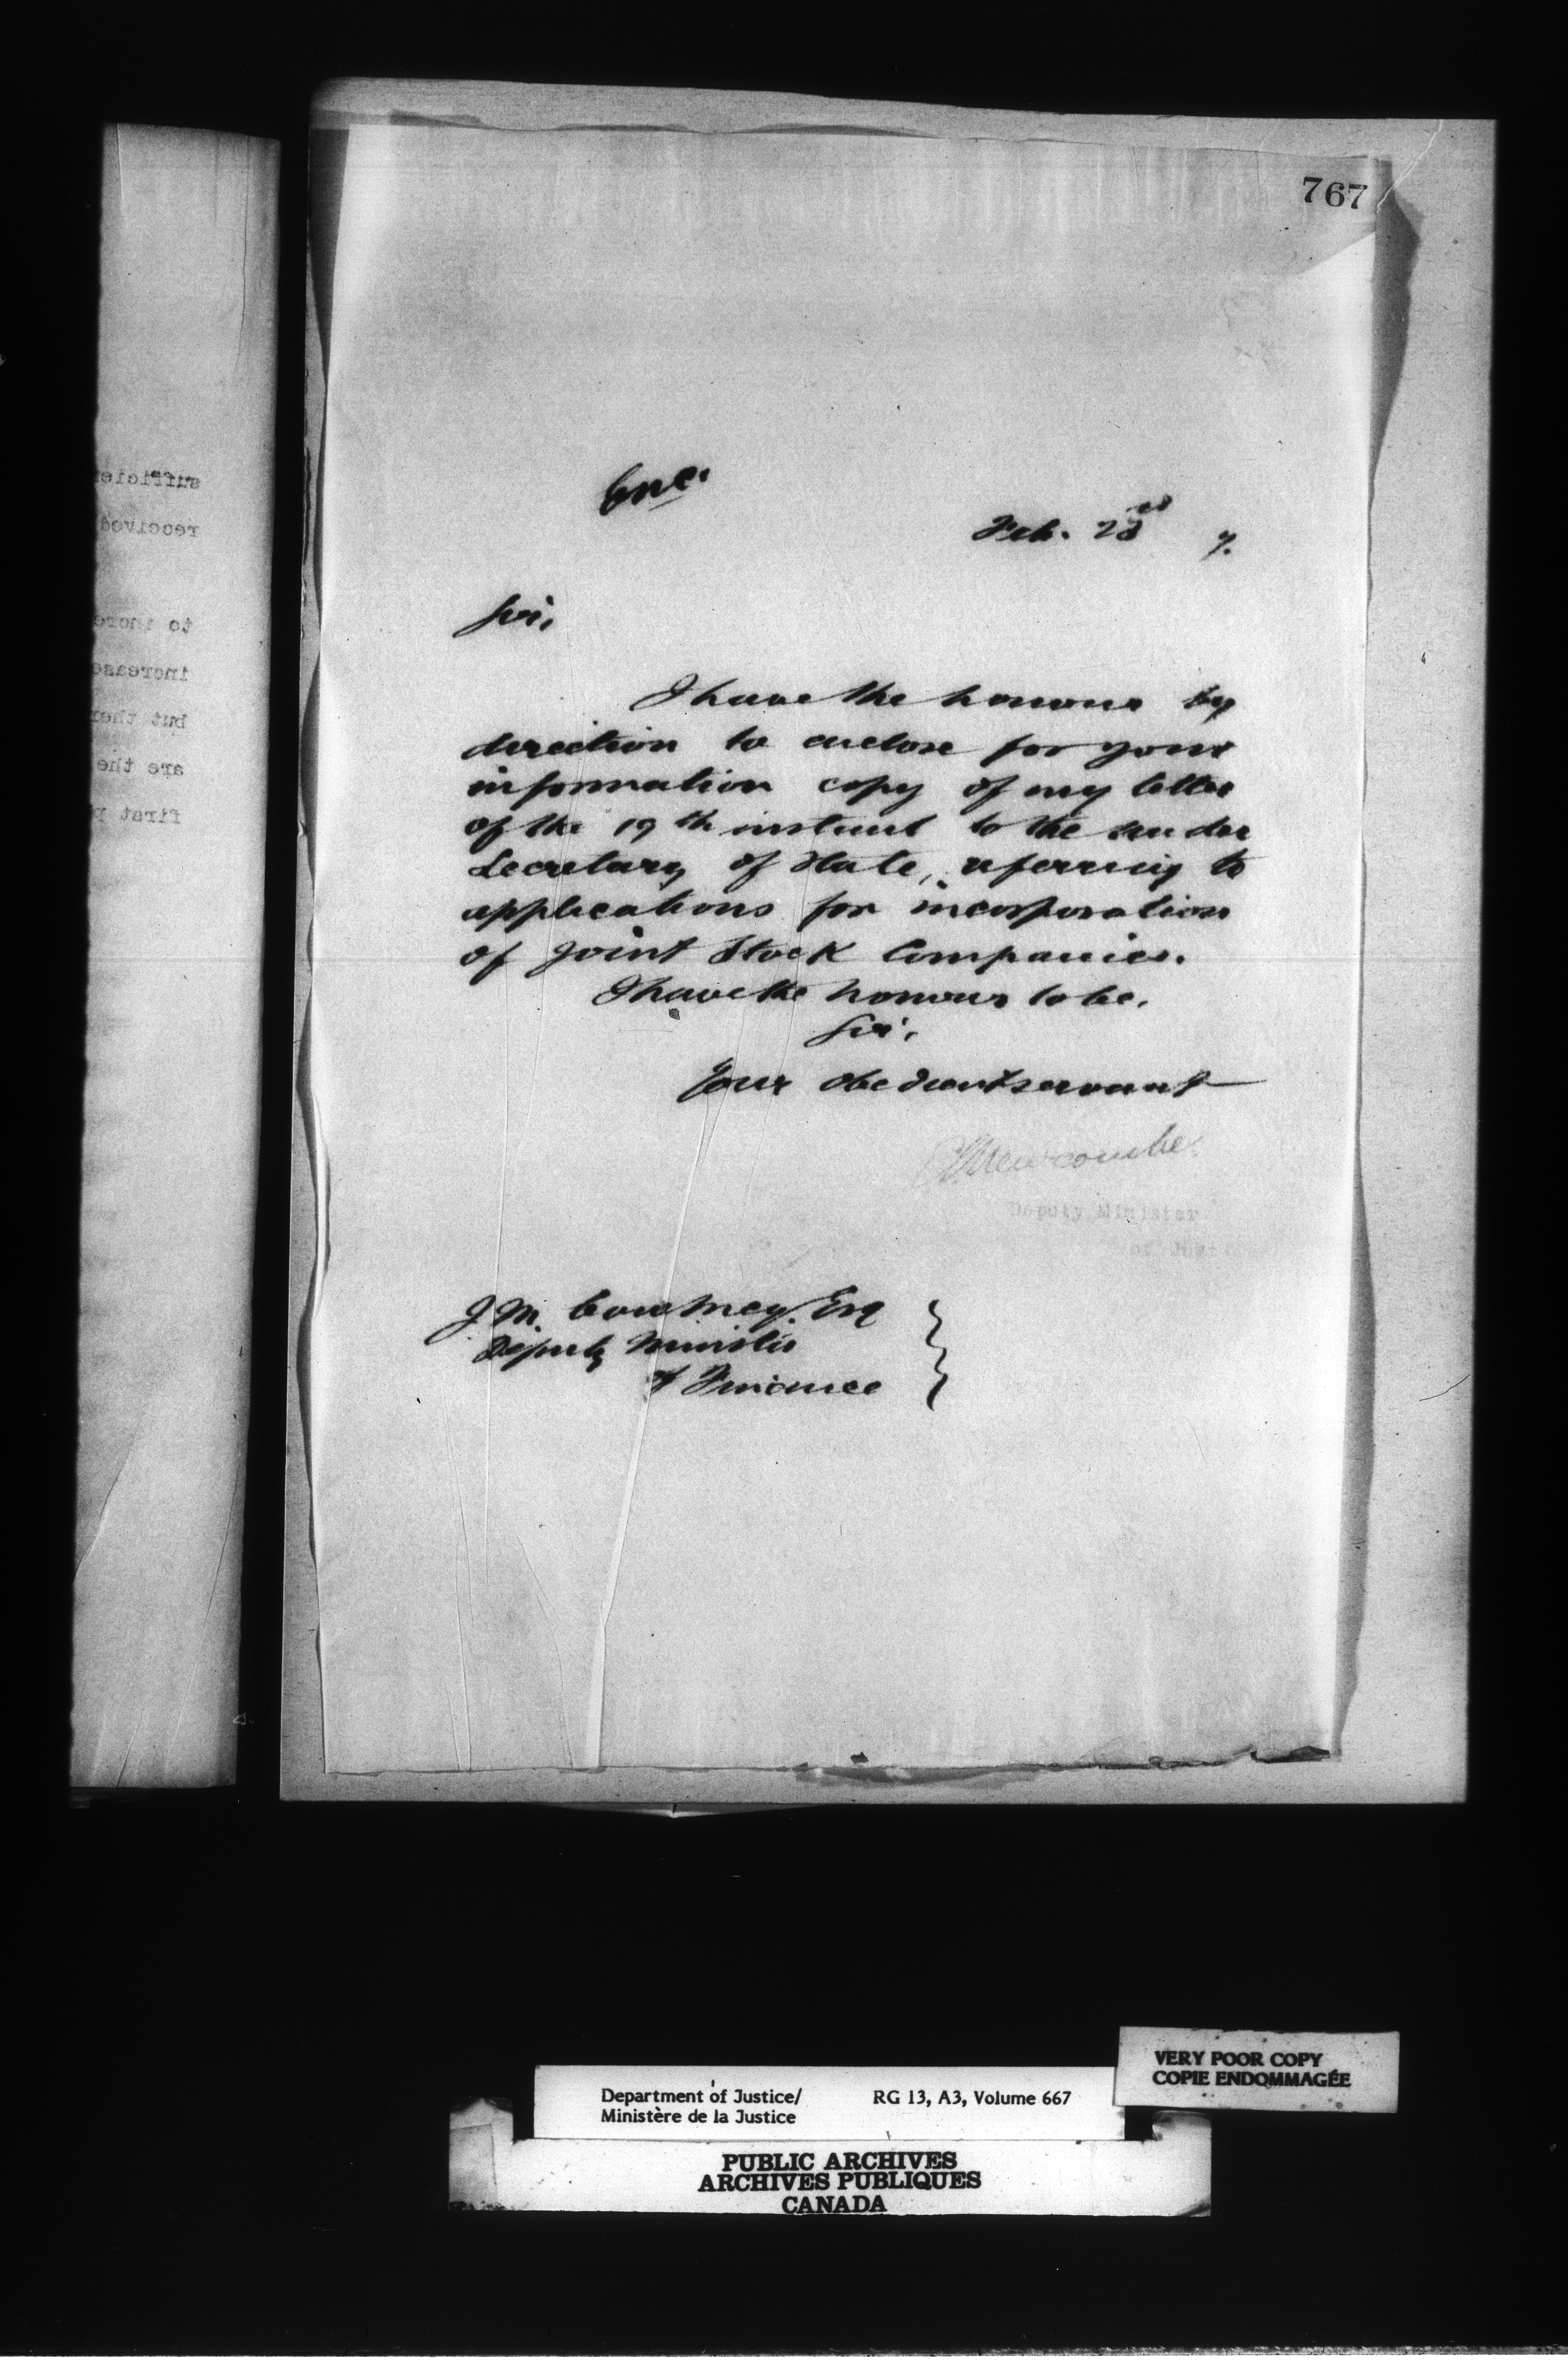 767
Enc.
Feb. 23rd 7.
Sir,
I have the honour by
direction to enclose for your
information copy of my letter
of the 19th instant to the under
Secretary of State, referring to
applications for incorporation
of Joint Stock Companies.
I have the honour to be,
Sir,
Your obedient servant
Newcombe
Deputy Minister
of Justice
J. M. Courtney, Esq
Deputy Minister
of Finance
sufficien
received
to incre
increase
but ther
are the
first p
VERY POOR COPY
COPIE ENDOMMAGÉE
Department of Justice/ RG 13, A3, Volume 667
Ministère de la Justice
PUBLIC ARCHIVES
ARCHIVES PUBLIQUES
CANADA